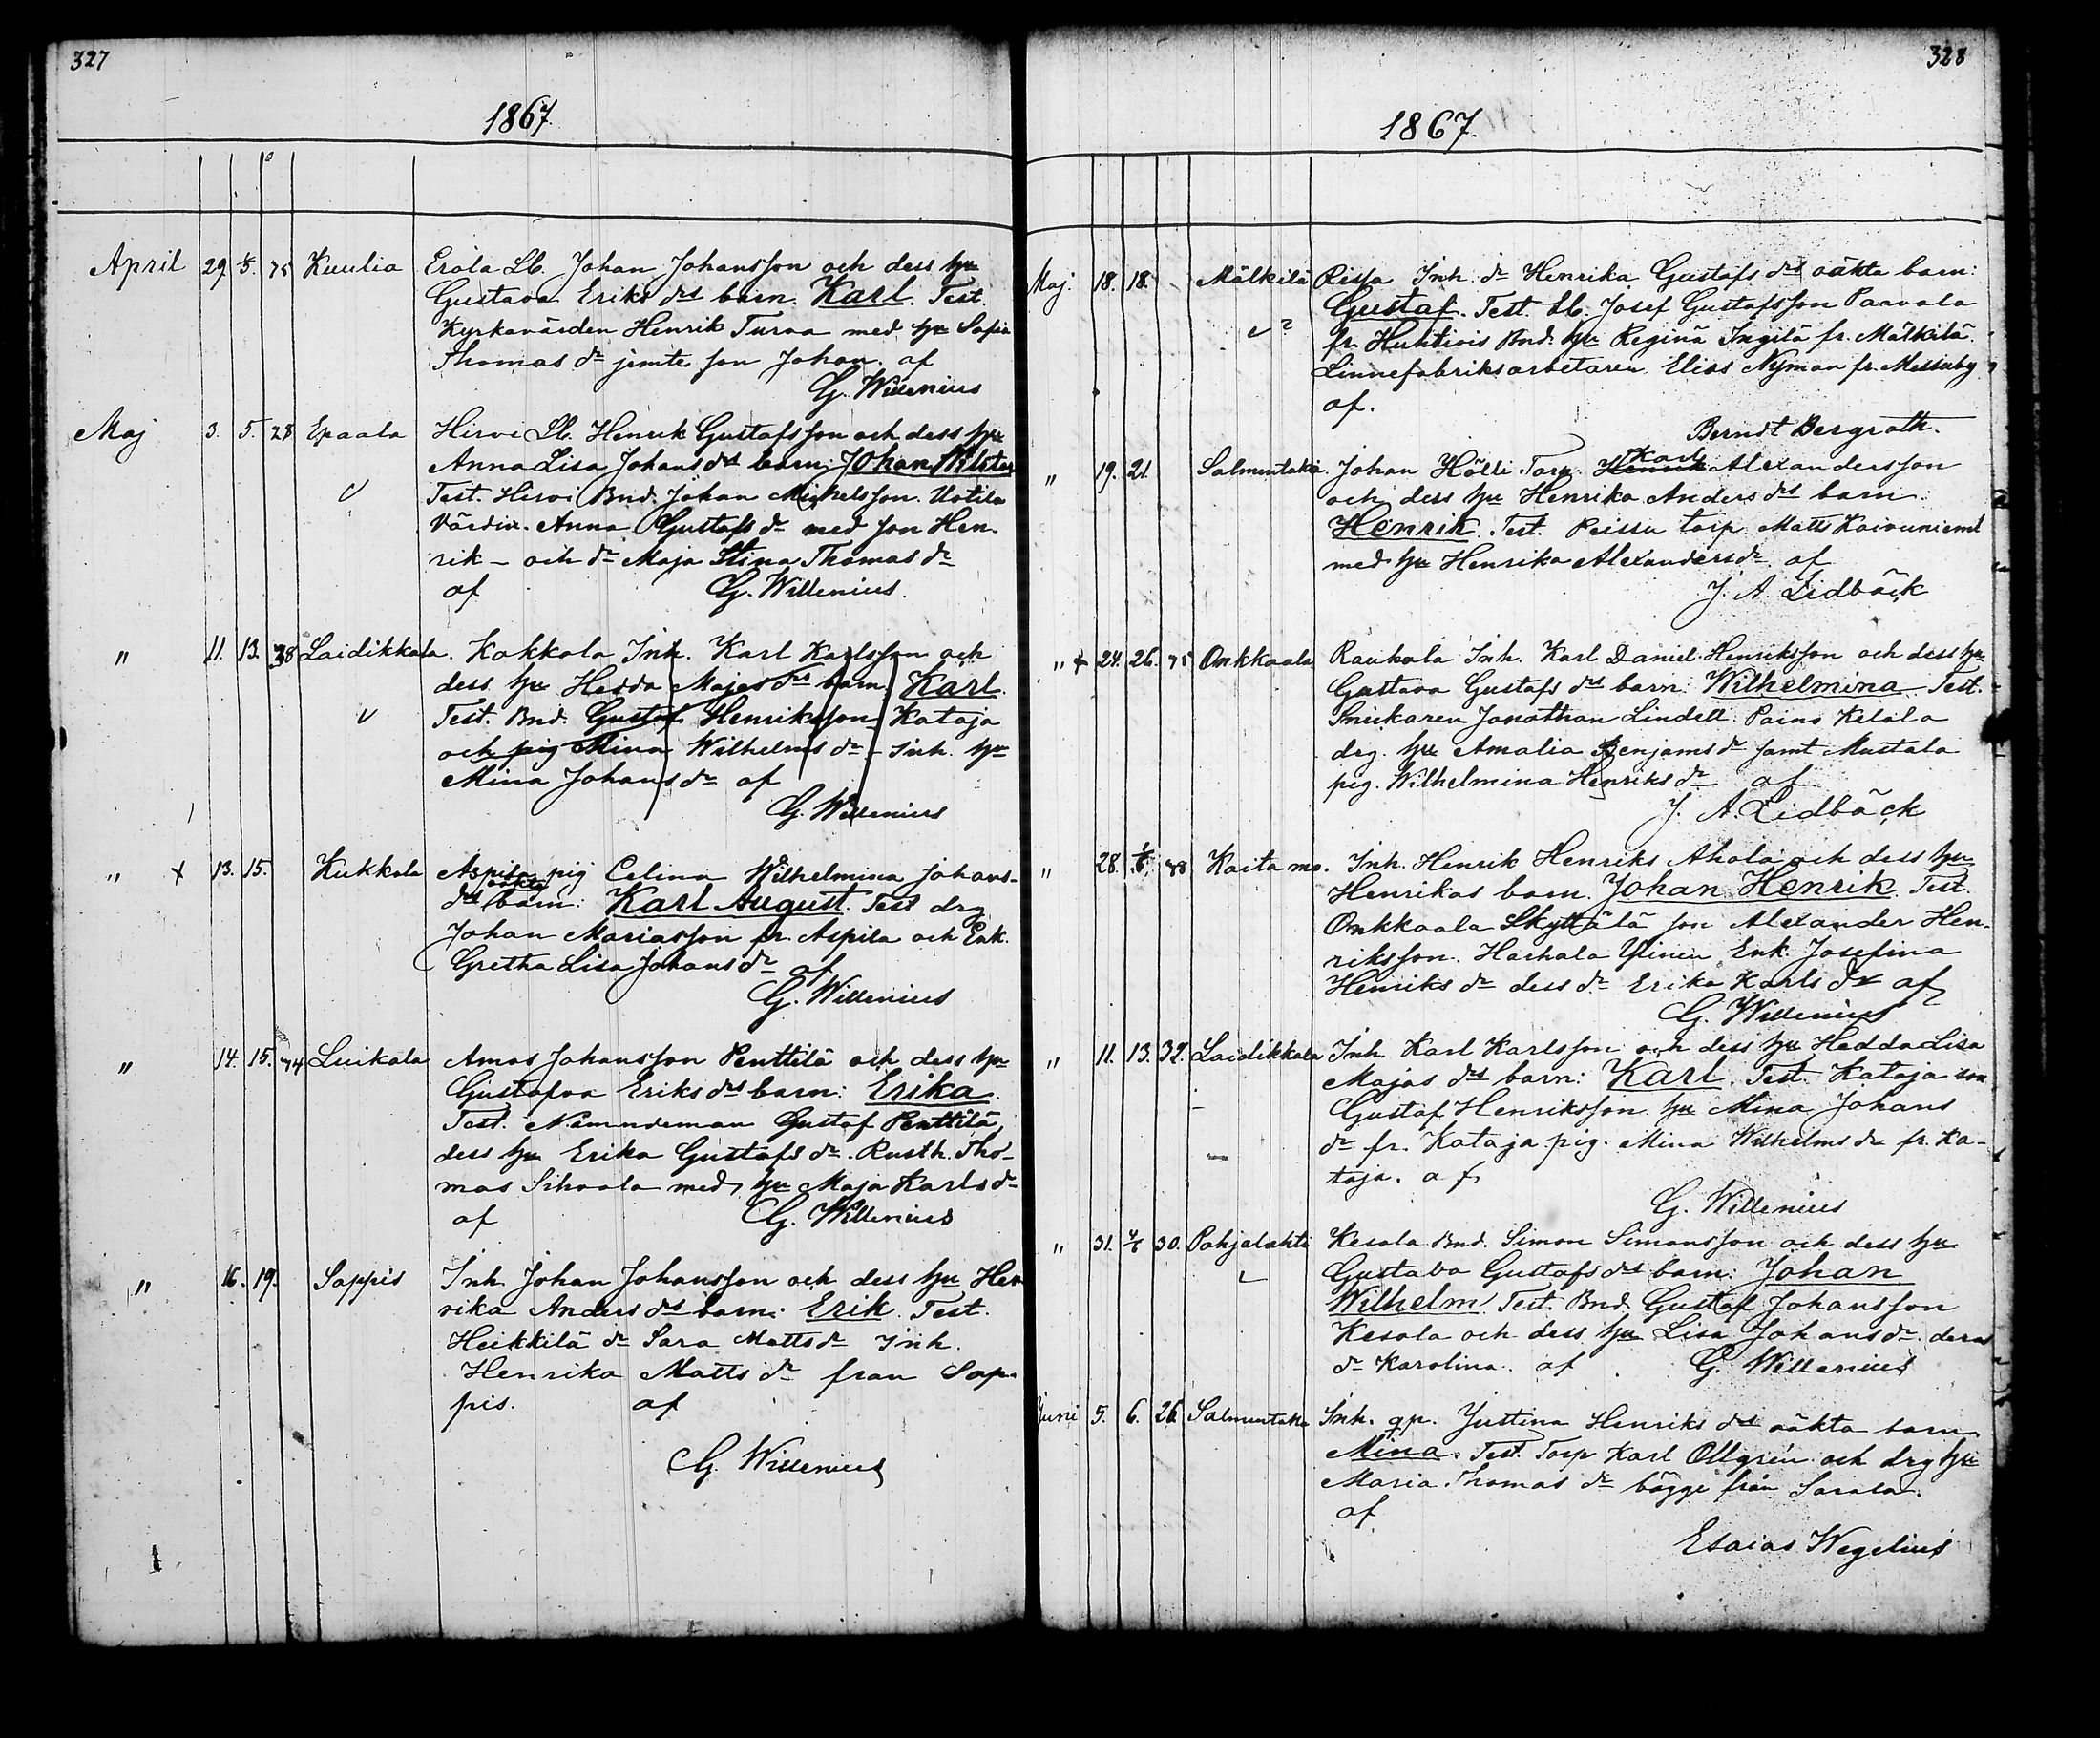 327
1867
April 29. 1/5. 75 Kuulia Erola Lb. Johan Johansson och dess hu
Gustava Eriks drs barn. Karl. Test.
Kyrkovärden Henrik Turva med hu Sofia
Thomas dr jemte son Johan. af
G. Willenius
Maj 3. 5. 28 Epaala Hirvi Lb. Henrik Gustafsson och dess hu
Anna Lisa Johans drs barn: Johan
Test. Hirvi Bnd. Johan Michelsson. Uotila
Värdin. Anna Gustafs dr med son Hen-
rik - och dr Maja Stina Thomas dr
af G. Willenius.
" 11. 13. 38 Laidikkala. Kokkola Inh. Karl Karlsson och
dess hu Hedda Majas drs barn. Karl.
Test. Bnd. Gustaf Henriksson Kataja
och pig Mina Wilhelms dr - Inh. hu
Mina Johans dr af
G. Willenius
" x 13. 15. Kukkola Aspila pig Celina Wilhelmina Johans-
drs oäkta barn: Karl August. Test drg
Johan Mariasson fr. Aspila och Enk.
Gretha Lisa Johans dr af
G. Willenius
" 14. 15. 74 Luikala Amos Johansson Penttilä och dess hu
Gustafva Eriks drs barn: Erika.
Test. Nämndeman Gustaf Penttilä,
dess hu Erika Gustafs dr. Rusth. Tho-
mas Sihvola med hu Maja Karls dr
af G. Willenius
" 16. 19. Sappis Inh. Johan Johansson och dess hu Hen
rika Anders drs barn: Erik. Test.
Heikkilä dr Sara Matts dr Inh.
Henrika Matts dr fran Sap-
pis. af
G. Willenius
328
1867.
Maj. 18. 18. Mälkilä Rissa Inh. dr Henrika Gustafs drs oäkta barn:
Gustaf. Test. Lb. Josef Gustafsson Paavola
fr. Huhtiois Bnd. hu Regina Ingilä fr. Mälkilä.
Linnefabriksarbetaren Elias Nyman fr. Messuby
af.
Berndt Bergroth.
" 19. 21. Salmentaka. Johan Hölli Torp. Henrik Karl Alexandersson
och dess hu Henrika Anders drs barn:
Henrik. Test. Peissu torp. Matts Koivuniemi
med hu Henrika Alexanders dr af
J. A. Lidbäck
" x 24. 26. 75 Onkkaala Raukola Inh. Karl Daniel Henriksson och dess hu
Gustava Gustafs drs barn: Wilhelmina. Test.
Snickaren Jonathan Lindell. Paino Kelola
drg. hu Amalia Benjams dr samt Mustala
pig. Wilhelmina Henriks dr af
J. A. Lidbäck
" 28. 88 Kaita mo. Inh. Henrik Henriks Ahola och dess hu
Henrikas barn. Johan Henrik. Test.
Onkkaala Skyttälä son Alexander Hen-
riksson. Harhala Ylinen Enk. Josefina
Henriks dr dess dr Erika Karls dr af
G. Willenius
" 11. 13. 32. Laidikkala Inh. Karl Karlsson och dess hu Hedda Lisa
Majas drs barn: Karl. Test. Kataja son
Gustaf Henriksson hu Mina Johans
dr fr. Kataja pig. Mina Wilhelms dr fr. Ka-
taja. af
G. Willenius
" 31. 2/6 30. Pohjalahti Kesola Bnd. Simon Simonsson och dess hu
Gustava Gustafs drs barn: Johan
Wilhelm. Test. Bnd. Gustaf Johansson
Kesola och dess hu Lisa Johans dr. deras
dr Karolina. af G. Willenius
Juni 5. 6. 26. Salmentaka Inh. qp. Justina Henriks drs oäkta barn
Mina. Test. Torp Karl Ollgrén och drg hu
Maria Thomas dr bägge från Sarala.
af
Esaias Wegelius